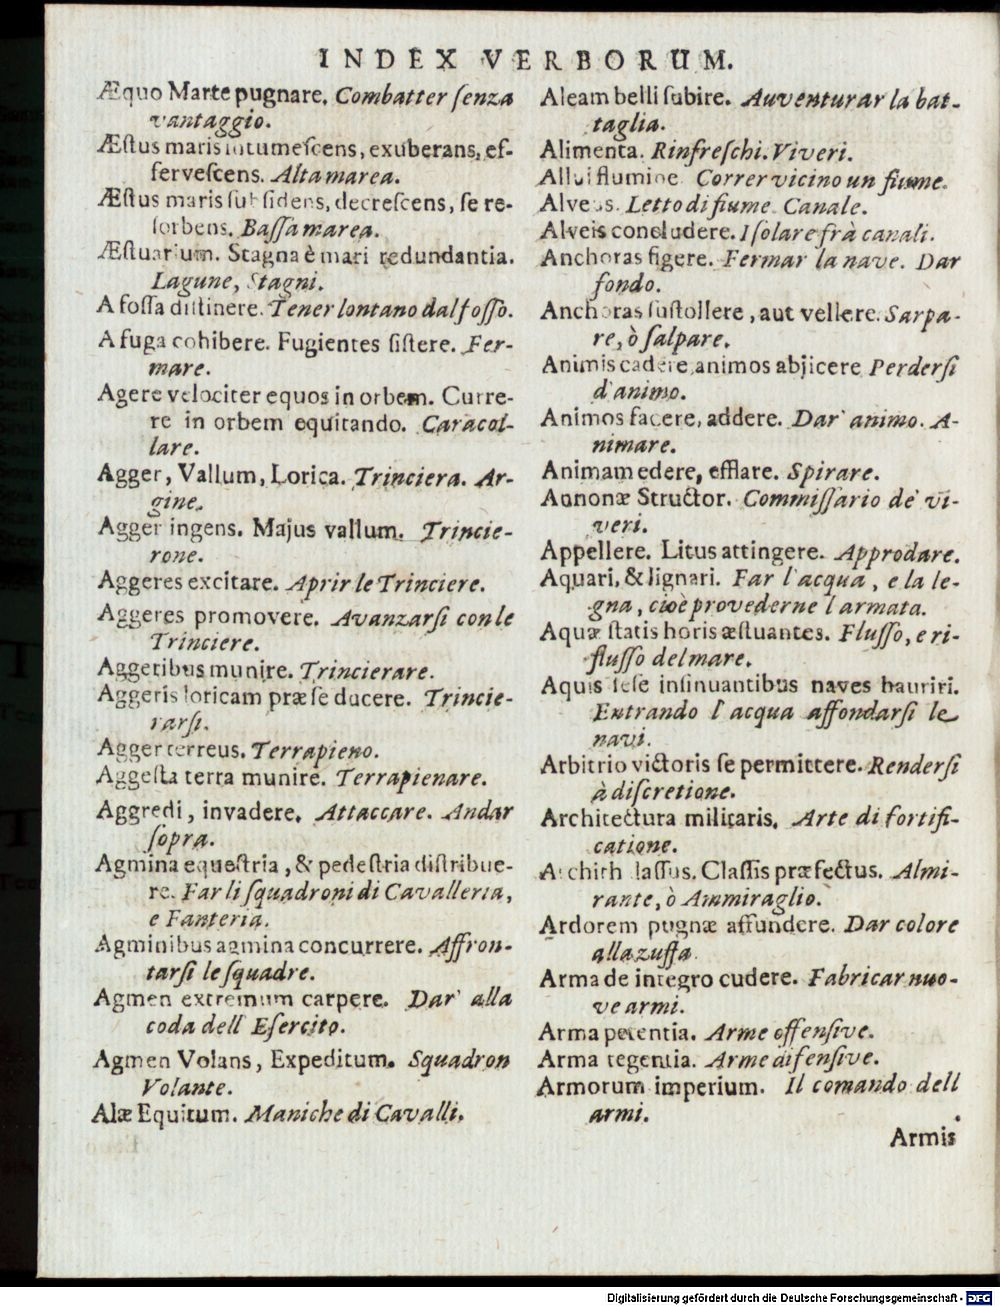 INDEX VERBORUM.
Æquo Marte pugnare. Combatter ſenza
vantaggio.
Æſtus maris intumeſcens, exuberans, ef-
ferveſcens. Alta marea.
Æſtus maris ſubſidens, decreſcens, ſe re-
ſorbens. Baſſa marea.
Æſtuarium. Stagna è mari redundantia.
Lagune, Stagni.
A foſſa diſtinere. Tener lontano dal foſſo.
A fuga cohibere. Fugientes ſiſtere. Fer-
mare.
Agere velociter equos in orbem. Curre-
re in orbem equitando. Caracol-
lare.
Agger, Vallum, Lorica. Trinciera. Ar-
gine.
Agger ingens. Majus vallum. Trincie-
rone.
Aggeres excitare. Aprir le Trinciere.
Aggeres promovere. Avanzarſi con le
Trinciere.
Aggeribus munire. Trincierare.
Aggeris loricam præ ſe ducere. Trincie-
rarſi.
Agger terreus. Terrapieno.
Aggeſta terra munire. Terrapienare.
Aggredi, invadere. Attaccare. Andar
ſopra.
Agmina equeſtria, & pedeſtria diſtribue-
re. Far li ſquadroni di Cavalleria,
e Fanteria.
Agminibus agmina concurrere. Affron-
tarſi le ſquadre.
Agmen extremum carpere. Dar' alla
coda dell' Eſercito.
Agmen Volans, Expeditum. Squadron
Volante.
Alæ Equitum. Maniche di Cavalli.
Aleam belli ſubire. Auventurar la bat-
taglia.
Alimenta. Rinfreſchi. Viveri.
Allui flumine. Correr vicino un fiume.
Alveus. Letto di fiume. Canale.
Alveis concludere. Iſolare frà canali.
Anchoras figere. Fermar la nave. Dar
fondo.
Anchoras ſuſtollere, aut vellere. Sarpa-
re, ò ſalpare.
Animis cadere, animos abjicere Perderſi
d'animo.
Animos facere, addere. Dar' animo. A-
nimare.
Animam edere, efflare. Spirare.
Annonæ Structor. Commiſſario de' vi-
veri.
Appellere. Litus attingere. Approdare.
Aquari, & lignari. Far l'acqua, e la le-
gna, cioè provederne l'armata.
Aquæ ſtatis horis æſtuantes. Fluſſo, e ri-
fluſſo del mare.
Aquis ſeſe inſinuantibus naves hauriri.
Entrando l'acqua affondarſi le
navi.
Arbitrio victoris ſe permittere. Renderſi
à diſcretione.
Architectura militaris. Arte di fortifi-
catione.
Archithalaſſus. Claſſis præfectus. Almi-
rante, ò Ammiraglio.
Ardorem pugnæ affundere. Dar colore
alla zuffa.
Arma de integro cudere. Fabricar nuo-
ve armi.
Arma petentia. Arme offenſive.
Arma tegentia. Arme difenſive.
Armorum imperium. Il comando dell'
armi.
Armis
Digitalisierung gefördert durch die Deutsche Forschungsgemeinschaft - DFG